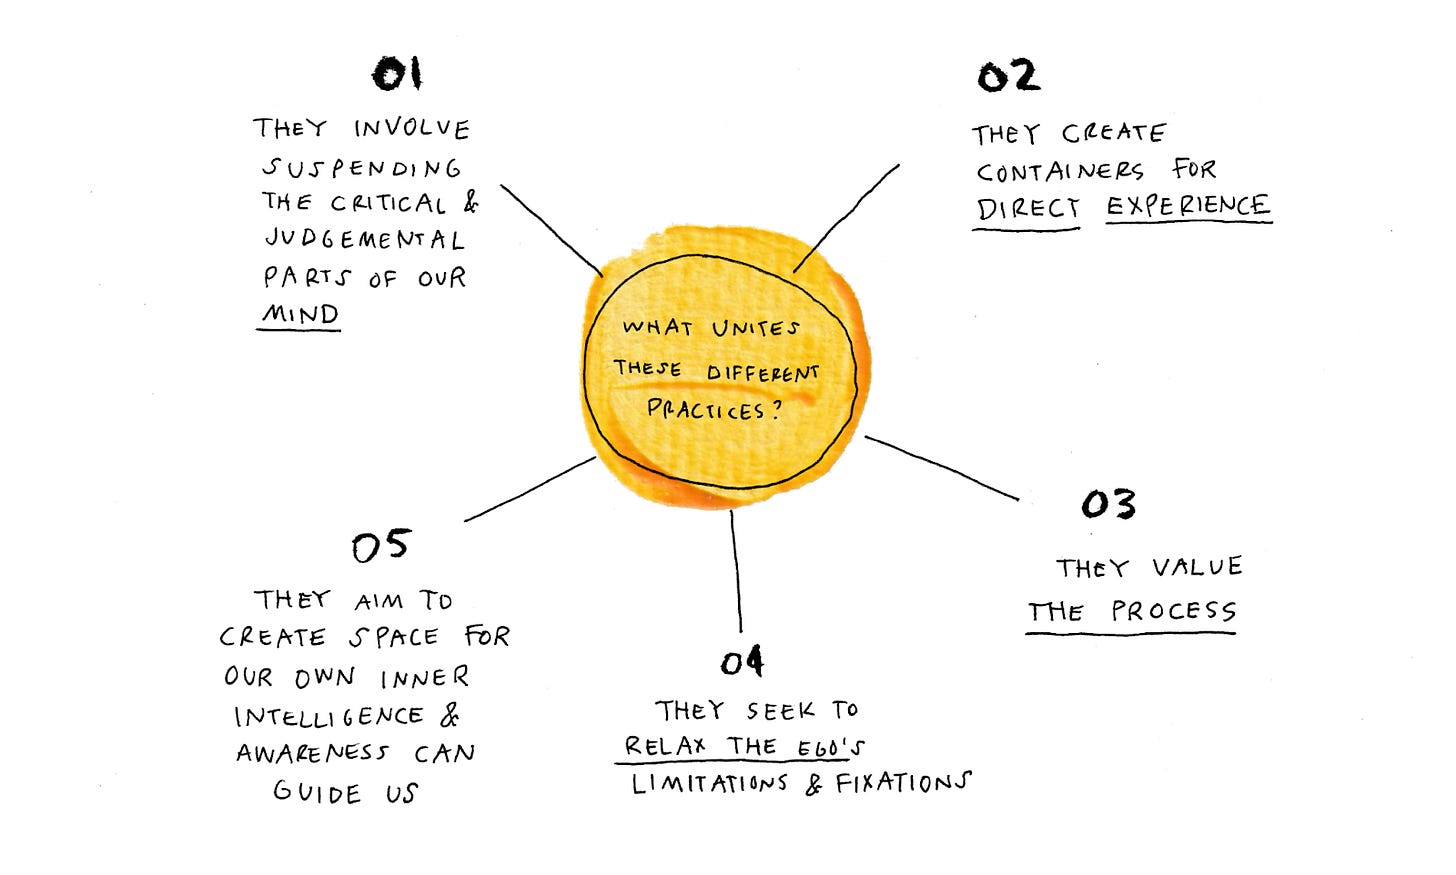 WHAT UNITES
THESE DIFFERENT
PRACTICES?
01
THEY INVOLVE
SUSPENDING
THE CRITICAL &
JUDGEMENTAL
PARTS OF OUR
MIND
02
THEY CREATE
CONTAINERS FOR
DIRECT EXPERIENCE
03
THEY VALUE
THE PROCESS
04
THEY SEEK TO
RELAX THE EGO'S
LIMITATIONS & FIXATIONS
05
THEY AIM TO
CREATE SPACE FOR
OUR OWN INNER
INTELLIGENCE &
AWARENESS CAN
GUIDE US